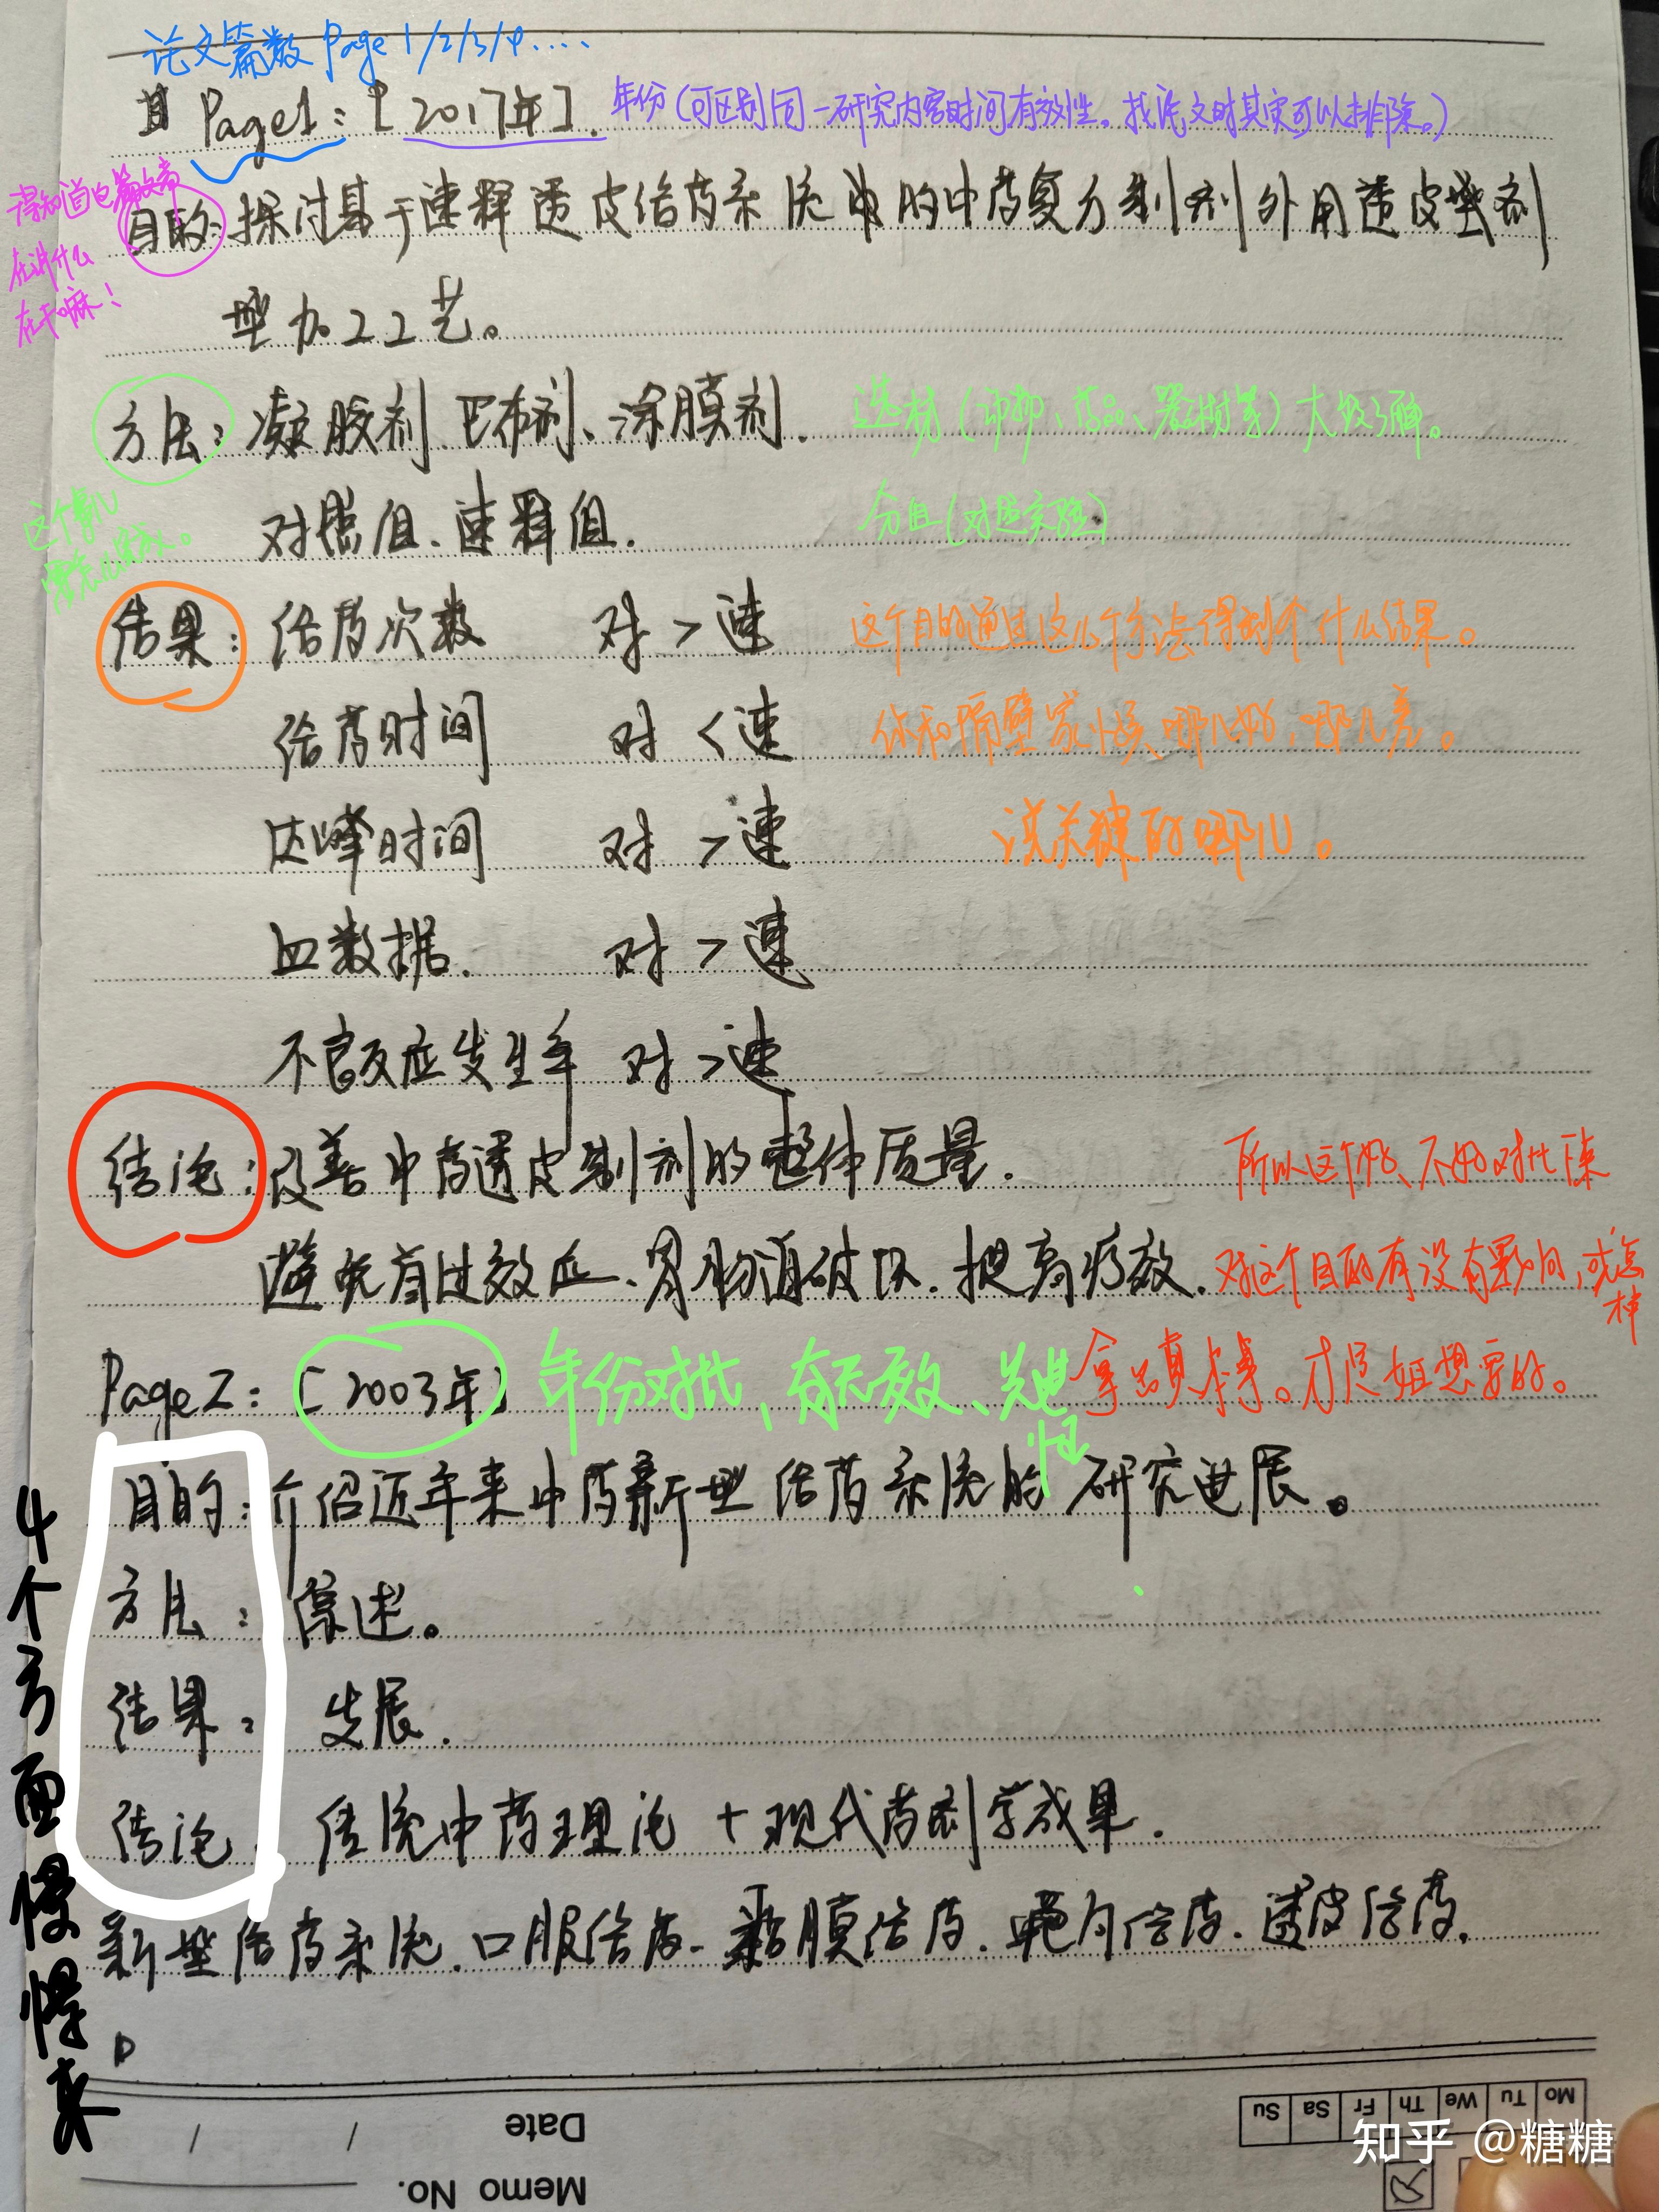 论文篇数 Page 1/2/3/4.....
Page1:[2017年]. 年份(可区别同一研究内容时间有效性。找论文时其实可以排除。)
得知道这篇文章
在讲什么
在干嘛!
目的:探讨基于速释透皮给药系统的中药复方制剂外用透皮剂
型加工工艺。
方法:凝胶剂、巴布剂、涂膜剂. 选材(药品、器材等)大致了解。
对照组、速释组. 分组(对照实验)
这个事儿
要怎么做。
结果:给药次数 对>速 这个目的通过这个方法得到个什么结果。
给药时间 对<速 你和隔壁家小孩、哪儿好,哪儿差。
达峰时间 对>速 说关键的哪儿。
血数据. 对>速
不良反应发生率 对>速
结论:改善中药透皮制剂的整体质量. 所以这个好、不好对比下来
避免首过效应、胃肠道破坏.提高疗效. 对这个目的有没有影响,或怎样
Page2:[2003年] 年份对比,有无效、先进性 拿出真本事。才是姐想要的。
目的:介绍近年来中药新型给药系统的研究进展。
方法:综述。
结果:发展.
结论:传统中药理论+现代药剂学成果.
新型给药系统.口服给药.黏膜给药.靶向给药.透皮给药.
4个方面慢慢来
Mo Tu We Th Fr Sa Su
Date / /
Memo No.
知乎 @糖糖